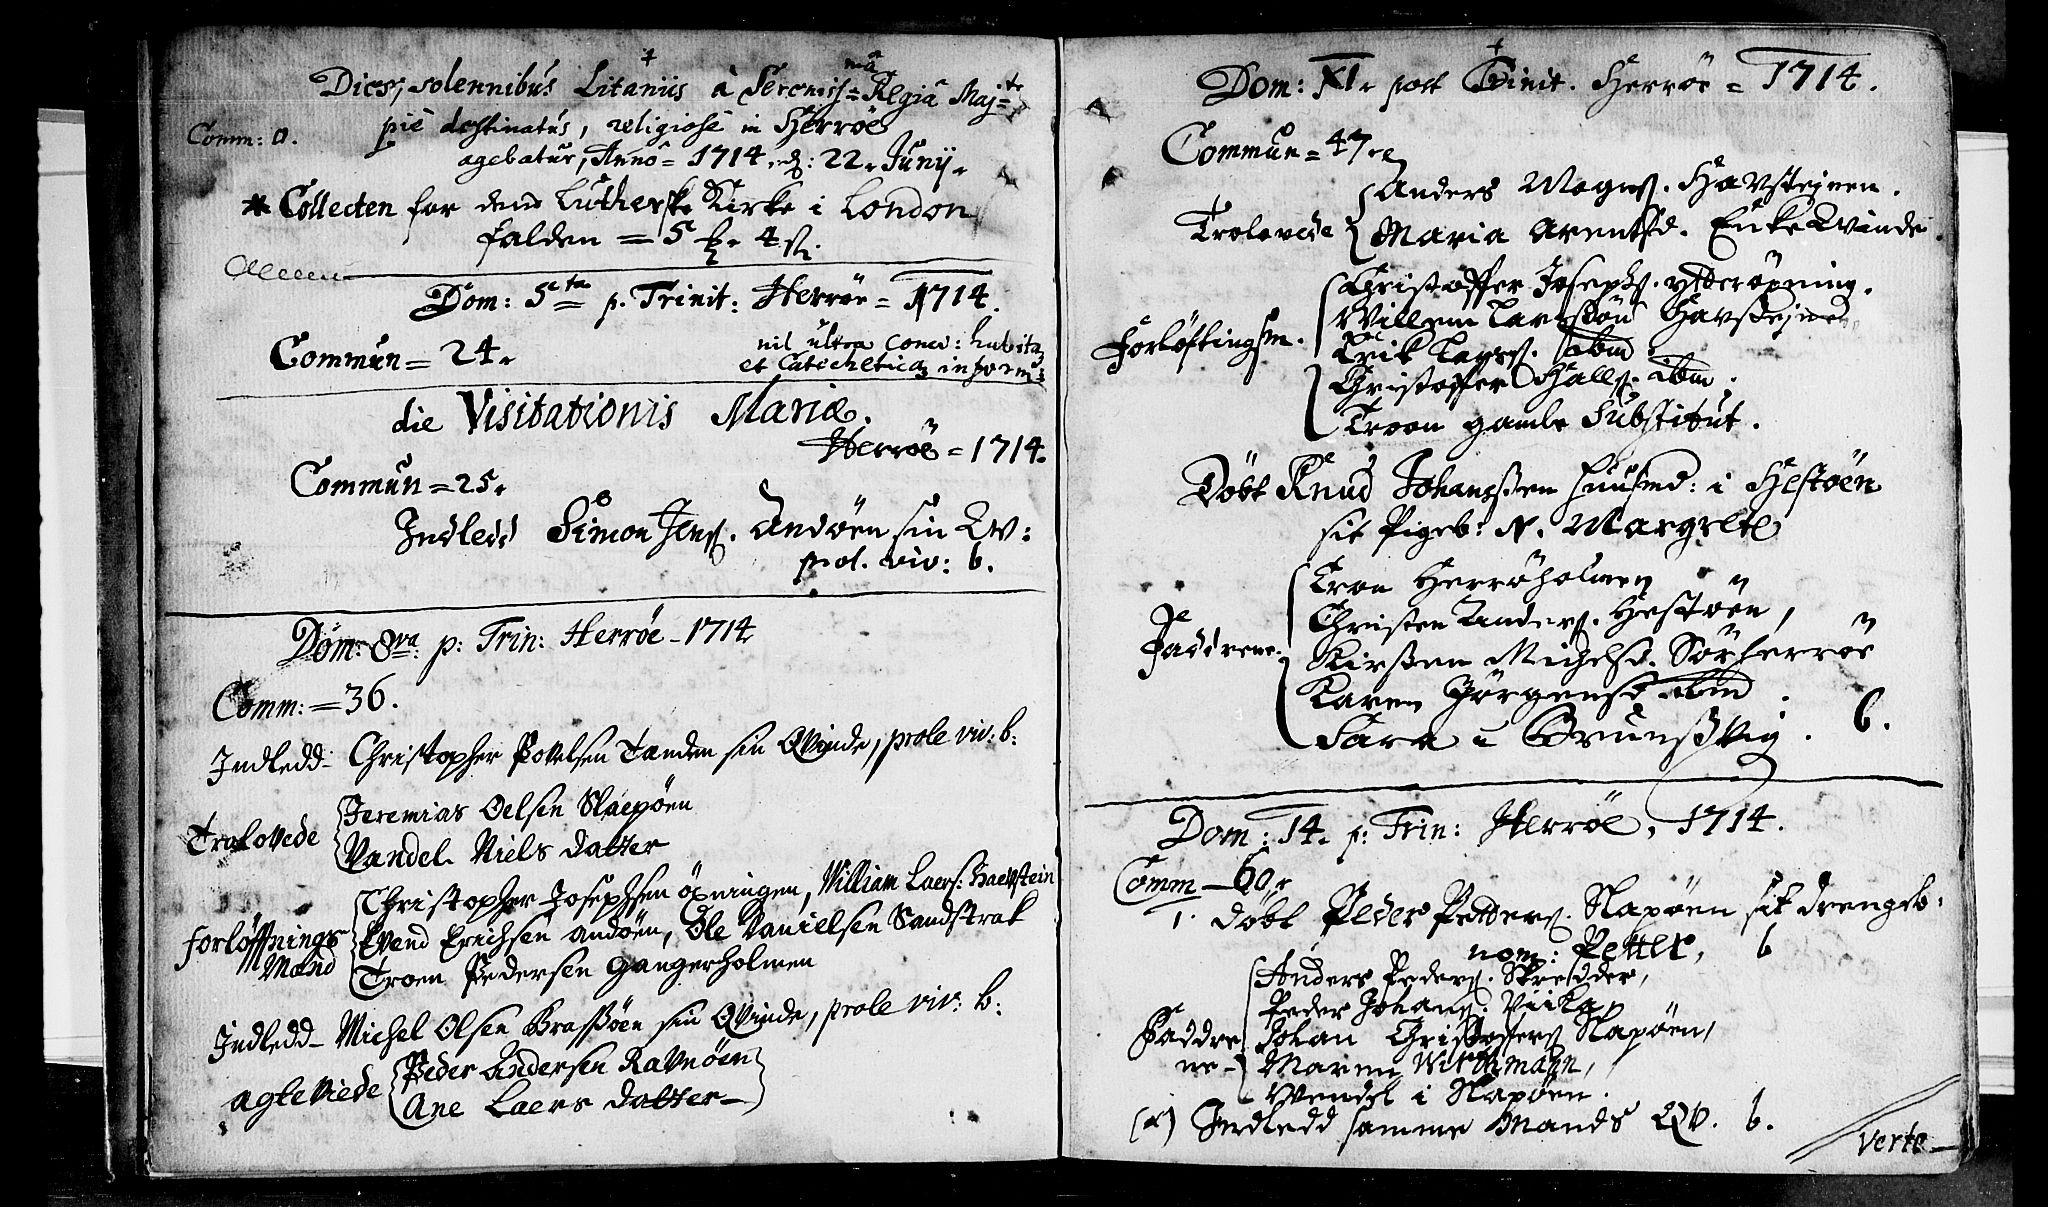 Dies, solennibus Litaniis à Sereniss=mâ Regiâ Maj=te
Comm: 0.
piè destinatus, religiosè in Herrøe
agebatur, Anno = 1714, d: 22. Junij.
* Collecten for den Lutherske Kirke i London
falden = 5 4
Dom: 5ta p. Trinit: Herrøe = 1714.
Commun = 24.
nil ultra conc: habita
et Catechetica inform:
die Visitationis Mariæ.
Herröe = 1714.
Commun = 25.
Indledd Simon Jens. Andøen sin Qv:
prol. viv: b.
Dom: 8va: p: Trin: Herrøe - 1714
Comm: = 36.
Indledd - Christopher Povelsen Tanden sin Qvinde, prole viv: b:
Trolovede
Jeremias Oelsen Slaepøen
Vandel Niels datter
Forløffnings Mænd
Christopher Josephsen öxningen, William Laers: Haevstein
Evend Erichsen andøen, Ole Danielsen Sandstrak
Troen Pedersen Gangerholmen
Indledd - Michel Olsen Brasøen sin Qvinde, prole viv: b:
agteviede
Peder Andersen Ravnøen
Ane Laers datter -
Dom: XI. post Trinit. Herröe = 1714.
Commun = 47.
Trolovede
Anders Mogns. Havsteinen.
Maria Arentsd. Enke Qvinde.
Forløftingsm.
Christoffer Josephs. ytterøxning.
Willem Larssön Havsteinen
Erik Lars. ibm.
Christoffer Halls. ibm.
Troen gamle Substitut.
Döbt Knud Johanssen huusmd: i Hestöen
sit Pigeb: N. Margrete
Faddrene.
Tron Herröholmen
Christen Anders. Hestöen,
Kirsten Michelsd. Sörherröe
Karen Jörgensd ibm.
Sara i Bruunsvig. b.
Dom: 14. p: Trin: Herröe, 1714.
Comm - 60.
1. Döbt Peder Petters. Slapöen sit drengeb:
nom: Petter, b
Anders Peders. Skredder,
Peder Johans. Viika,
Faddre Johan Christoffers Slapöen,
ne - Maren Wirthmann,
Wendel i Slapöen.
(2) Indledd samme Mands Qv. b.
Verte -